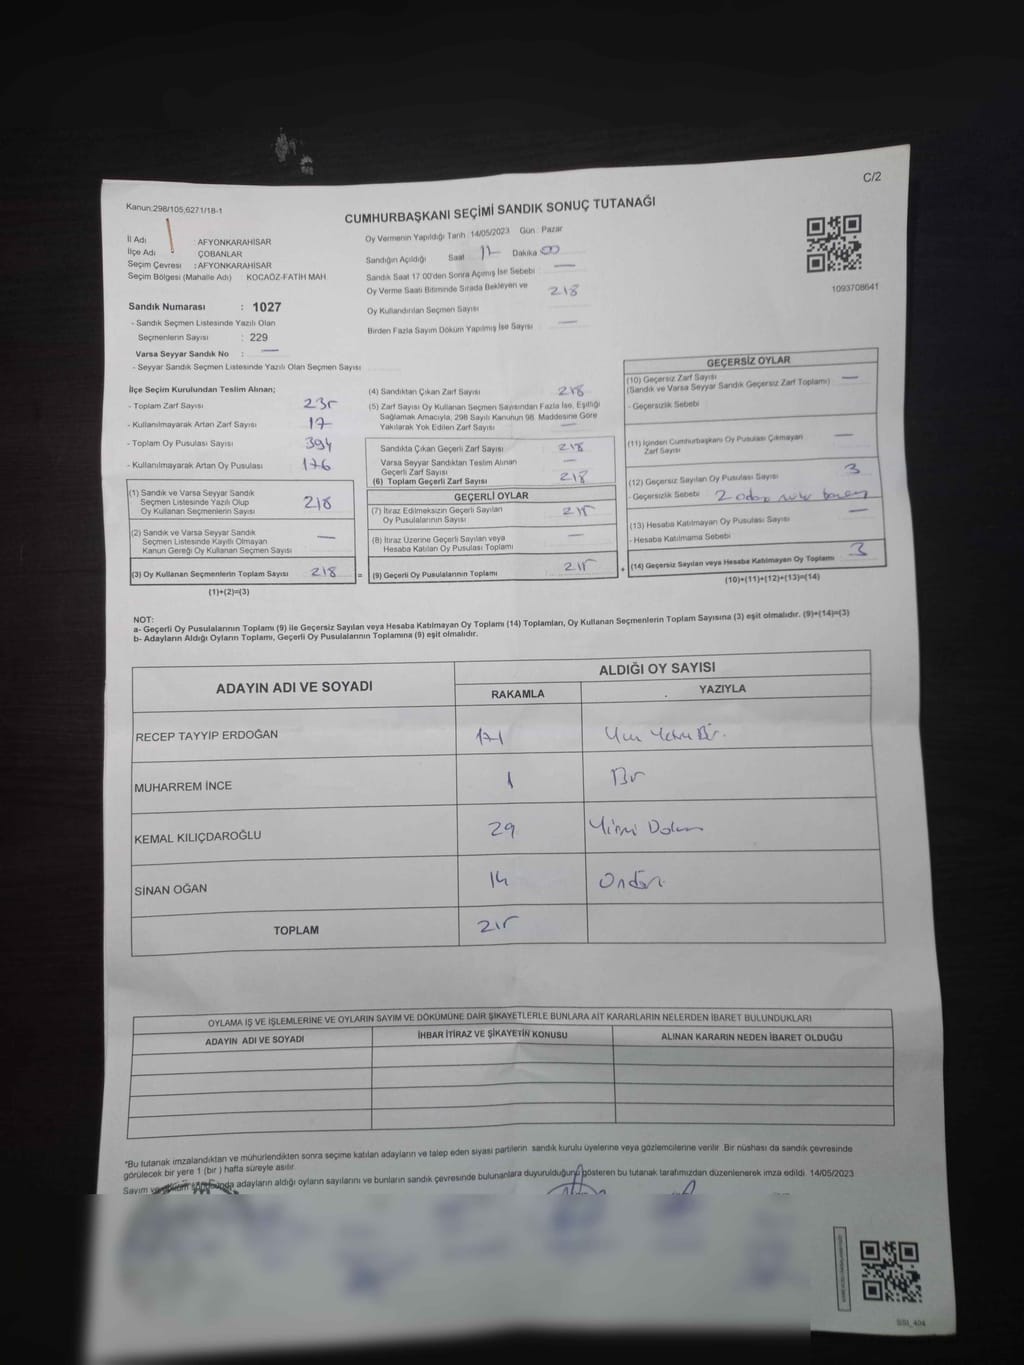 C/2
Kanun:298/105,6271/18-1
CUMHURBAŞKANI SEÇİMİ SANDIK SONUÇ TUTANAĞI
İl Adı : AFYONKARAHİSAR
İlçe Adı : ÇOBANLAR
Seçim Çevresi : AFYONKARAHİSAR
Seçim Bölgesi (Mahalle Adı) KOCAÖZ-FATİH MAH.
Sandık Numarası : 1027
- Sandık Seçmen Listesinde Yazılı Olan
Seçmenlerin Sayısı : 229
Varsa Seyyar Sandık No : —
- Seyyar Sandık Seçmen Listesinde Yazılı Olan Seçmen Sayısı
Oy Vermenin Yapıldığı Tarih : 14/05/2023 Gün : Pazar
Sandığın Açıldığı Saat 17 Dakika 00
Sandık Saat 17.00'den Sonra Açımış İse Sebebi —
Oy Verme Saati Bitiminde Sırada Bekleyen ve 218
Oy Kullandırılan Seçmen Sayısı
Birden Fazla Sayım Döküm Yapılmış İse Sayısı —
1093708641
İlçe Seçim Kurulundan Teslim Alınan;
- Toplam Zarf Sayısı 235
- Kullanılmayarak Artan Zarf Sayısı 17
- Toplam Oy Pusulası Sayısı 394
- Kullanılmayarak Artan Oy Pusulası 176
(1) Sandık ve Varsa Seyyar Sandık
Seçmen Listesinde Yazılı Olup
Oy Kullanan Seçmenlerin Sayısı 218
(2) Sandık ve Varsa Seyyar Sandık
Seçmen Listesinde Kayıtlı Olmayan
Kanun Gereği Oy Kullanan Seçmen Sayısı —
(3) Oy Kullanan Seçmenlerin Toplam Sayısı 218 =
(1)+(2)=(3)
(4) Sandıktan Çıkan Zarf Sayısı 218
(5) Zarf Sayısı Oy Kullanan Seçmen Sayısından Fazla İse, Eşitliği
Sağlamak Amacıyla, 298 Sayılı Kanunun 98. Maddesine Göre
Yakılarak Yok Edilen Zarf Sayısı —
Sandıkta Çıkan Geçerli Zarf Sayısı 218
Varsa Seyyar Sandıktan Teslim Alınan
Geçerli Zarf Sayısı —
(6) Toplam Geçerli Zarf Sayısı 218
GEÇERLİ OYLAR
(7) İtiraz Edilmeksizin Geçerli Sayılan
Oy Pusulalarının Sayısı 215
(8) İtiraz Üzerine Geçerli Sayılan veya
Hesaba Katılan Oy Pusulası Toplamı —
(9) Geçerli Oy Pusulalarının Toplamı 215 +
GEÇERSİZ OYLAR
(10) Geçersiz Zarf Sayısı —
(Sandık ve Varsa Seyyar Sandık Geçersiz Zarf Toplamı)
- Geçersizlik Sebebi
(11) İçinden Cumhurbaşkanı Oy Pusulası Çıkmayan —
Zarf Sayısı
(12) Geçersiz Sayılan Oy Pusulası Sayısı 3
- Geçersizlik Sebebi 2
(13) Hesaba Katılmayan Oy Pusulası Sayısı —
- Hesaba Katılmama Sebebi
(14) Geçersiz Sayılan veya Hesaba Katılmayan Oy Toplamı 3
(10)+(11)+(12)+(13)=(14)
NOT:
a- Geçerli Oy Pusulalarının Toplamı (9) ile Geçersiz Sayılan veya Hesaba Katılmayan Oy Toplamı (14) Toplamları, Oy Kullanan Seçmenlerin Toplam Sayısına (3) eşit olmalıdır. (9)+(14)=(3)
b- Adayların Aldığı Oyların Toplamı, Geçerli Oy Pusulalarının Toplamına (9) eşit olmalıdır.
ADAYIN ADI VE SOYADI
ALDIĞI OY SAYISI
RAKAMLA YAZIYLA
RECEP TAYYİP ERDOĞAN 171 Yüz Yetmiş Bir
MUHARREM İNCE 1 Bir
KEMAL KILIÇDAROĞLU 29 Yirmi Dokuz
SİNAN OĞAN 14 Ondört
TOPLAM 215
OYLAMA İŞ VE İŞLEMLERİNE VE OYLARIN SAYIM VE DÖKÜMÜNE DAİR ŞİKAYETLERLE BUNLARA AİT KARARLARIN NELERDEN İBARET BULUNDUKLARI
ADAYIN ADI VE SOYADI İHBAR İTİRAZ VE ŞİKAYETİN KONUSU ALINAN KARARIN NEDEN İBARET OLDUĞU
*Bu tutanak imzalandıktan ve mühürlendikten sonra seçime katılan adayların ve talep eden siyasi partilerin sandık kurulu üyelerine veya gözlemcilerine verilir. Bir nüshası da sandık çevresinde
görülecek bir yere 1 (bir ) hafta süreyle asılır.
Sayım ve döküm sonucunda adayların aldığı oyların sayılarını ve bunların sandık çevresinde bulunanlara duyurulduğunu gösteren bu tutanak tarafımızdan düzenlenerek imza edildi. 14/05/2023
SSI_404